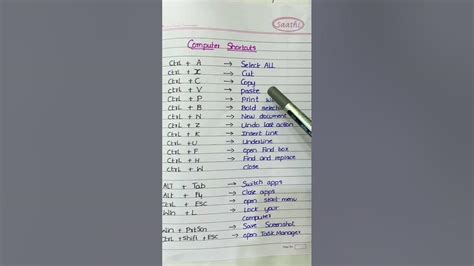 saathi
Computer Shortcuts
Ctrl + A → Select ALL
Ctrl + X → Cut
Ctrl + C → Copy
Ctrl + V → paste
Ctrl + P → Print
Ctrl + B → Bold
Ctrl + N → New document
Ctrl + Z → Undo last action
Ctrl + K → Insert line
Ctrl + U → Underline
Ctrl + F → open Find box
Ctrl + H → Find and replace
Ctrl + W → close
ALT + Tab → Switch apps
ALT + F4 → Close apps
Ctrl + ESC → open start menu
Win + L → Lock your
computer
Win + PrtScn → Save Screenshot
Ctrl + Shift + ESC → open Task Manager